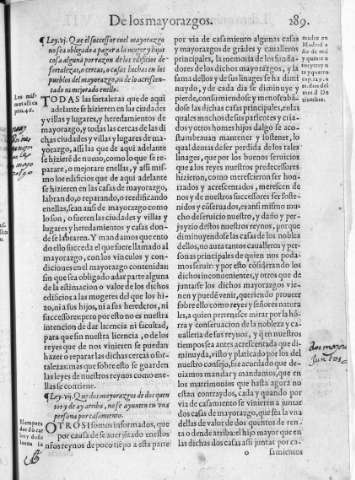 De los mayorazgos.
289.
¶ Ley. vj. Que el successor en el mayorazgo
no sea obligado a pagar a la muger y hijos
cosa alguna por razon de los edificios de
fortalezas, o cercas, o casas hechas en los
pueblos del mayorazgo, ni de lo acrescen-
tado ni mejorado en ello.
TODAS las fortalezas que de aqui
adelante se hizieren en las ciudades
y villas y lugares, y heredamientos de
mayorazgo, y todas las cercas de las di
chas ciudades y villas y lugares de ma-
yorazgo, assi las que de aqui adelante
se hizieré de nueuo, como lo que se repa-
rare, o mejorare en ellas, y assi mis
mo los edificios que de aqui adelante
se hizieren en las casas de mayorazgo,
labrando, o reparando, o reedificando
en ellas, sean assi de mayorazgo como
lo son, o fueren las ciudades y villas y
lugares y heredamientos y casas don-
de se labraren. Y mandamos que suceda
en ello el que fuere llamado al
mayorazgo, con los vinculos y condi-
ciones en el mayorazgo contenidas
sin que sea obligado a dar parte alguna
de la estimacion o valor de los dichos
edificios a las mugeres del que los hi-
zo, ni a sus hijos, ni a sus herederos, ni
successores: pero por esto no es nuestra
intencion de dar licencia ni facultad,
para que sin nuestra licencia, o de los
reyes que de nos vinieren se puedan
hazer o reparar las dichas cercas o for-
talezas: mas que sobre esto se guarden
las leyes de nuestros reynos como en e-
llas se contiene.
¶ Ley. vij. Que dos mayorazgos de dos quen
tos y de ay arriba, no se ayunten en vna
persona por casamiento.
OTROSI somos informados, que
por causa de se auer jūtado en estos
años reynos de poco tiēpo a esta parte
por via de casamiento algunas casas
y mayorazgos de grādes y caualleros
principales, la memoria de los funda-
dores de los dichos mayorazgos, y la
fama dellos y de sus linages se ha dimi
nuydo, y de cada dia se diminuye y
pierde, consumiendose y menoscabando
se las dichas casas principales, en las
quales muchos de sus pariētes y cria-
dos y otros hombres hijos dalgo se aco-
stumbrauan mantener y sostener, lo
qual demas de ser perdida de los tales
linages, que por los buenos seruicios
que a los reyes nuestros predecessores
hizieron, como merescieron ser hon-
rados y acrescentados, merescen de
nos y de nuestros successores ser soste-
nidos y cōseruados, es assi mismo mu-
cho deseruicio nuestro, y daño y per-
juyzio destos nuestros reynos, porque
diminuyendose las casas de los nobles
dellos, no aura tantos caualleros y per-
sonas principales de quien nos poda-
mos seruir: y por esto cōsiderando los
dichos inconuenientes, y otros que de
juntarse los dichos mayorazgos vie-
nen y puedē venir, queriendo proueer
sobre esto como reyes y señores natura
les, a quien pertenesce mirar por la hō-
ra y conseruacion de la nobleza y ca-
ualleria de sus reynos, y q̄ en nuestros
tiempos sea antes acrescentada que di-
minuyda, visto y platicado por los del
nuestro consejo, fue acordado que de-
uiamos mandar y mandamos, que en
los matrimonios que hasta agora no
estan contraydos, cada y quando por
via de casamiento se vinieren a juntar
dos casas de mayorazgo, que sea la vna
dellas de valor de dos quentos de ren-
ta o dende arriba: el hijo mayor que en
las dichas dos casas assi juntas por ca-
o
samiento